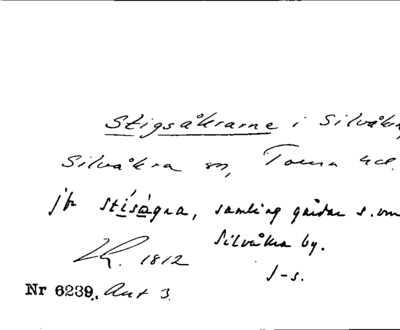 Stigsåkrarne i Silvåkra
Silvåkra sn, Torna hd.
jfr stisågra, samling gårdar s. om
Silvåkra by.
1812
J-s.
Nr 6239. Ant 3.